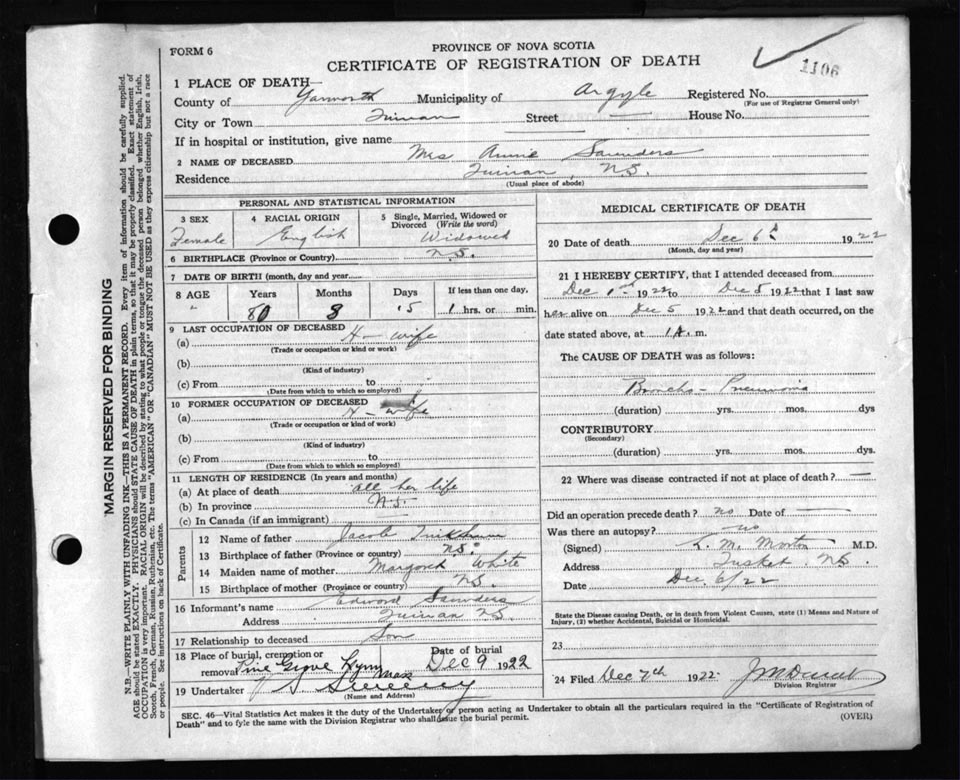 FORM 6
PROVINCE OF NOVA SCOTIA
CERTIFICATE OF REGISTRATION OF DEATH
1106
1 PLACE OF DEATH—
County of Yarmouth Municipality of Argyle Registered No.
(For use of Registrar General only)
City or Town Quinan Street — House No.
If in hospital or institution, give name
2 NAME OF DECEASED Mrs Annie Saunders
Residence Quinan, N.S.
(Usual place of abode)
PERSONAL AND STATISTICAL INFORMATION
3 SEX 4 RACIAL ORIGIN 5 Single, Married, Widowed or Divorced (Write the word)
Female English Widowed
6 BIRTHPLACE (Province or Country) N.S.
7 DATE OF BIRTH (month, day and year
8 AGE Years Months Days If less than one day,
" 80 8 15 1 hrs. or min.
9 LAST OCCUPATION OF DECEASED
(a) H-wife
(Trade or occupation or kind or work)
(b)
(Kind of industry)
(c) From to
(Date from which to which so employed)
10 FORMER OCCUPATION OF DECEASED
(a) H-wife
(Trade or occupation or kind of work)
(b)
(Kind of industry)
(c) From to
(Date from which to which so employed)
11 LENGTH OF RESIDENCE (In years and months)
(a) At place of death all her life
(b) In province N.S.
(c) In Canada (if an immigrant)
Parents
12 Name of father Jacob
13 Birthplace of father (Province or country) N.S.
14 Maiden name of mother Margaret White
15 Birthplace of mother (Province or country) N.S.
16 Informant's name Edward Saunders
Address Quinan N.S.
17 Relationship to deceased Son
18 Place of burial, cremation or removal Pine Grove Date of burial Dec 9 1922
19 Undertaker Sweeny
(Name and Address)
MEDICAL CERTIFICATE OF DEATH
20 Date of death Dec 6 1922
(Month, day and year)
21 I HEREBY CERTIFY, that I attended deceased from
Dec 1st 1922 to Dec 5 1922 that I last saw
her alive on Dec 5 1922 and that death occurred, on
date stated above, at 1 A. m.
The CAUSE OF DEATH was as follows:
Broncho-Pneumonia
(duration) yrs. mos. dys
CONTRIBUTORY
(Secondary)
(duration) yrs. mos. dys.
22 Where was disease contracted if not at place of death? —
Did an operation precede death? no Date of —
Was there an autopsy? no
(Signed) L. M. Morton M.D.
Address Tusket N.S.
Date Dec. 6/22
State the Disease causing Death, or in death from Violent Causes, state (1) Means and Nature of
Injury, (2) whether Accidental, Suicidal or Homicidal.
23
24 Filed Dec 7th 1922
Division Registrar
SEC. 46—Vital Statistics Act makes it the duty of the Undertaker or person acting as Undertaker to obtain all the particulars required in the "Certificate of Registration of
Death" and to fyle the same with the Division Registrar who shall issue the burial permit.
(OVER)
MARGIN RESERVED FOR BINDING
N.B.—WRITE PLAINLY WITH UNFADING INK—THIS IS A PERMANENT RECORD. Every item of information should be carefully supplied.
AGE should be stated EXACTLY. PHYSICIANS should STATE CAUSE OF DEATH in plain terms, so that it may be properly classified. Exact statement of
OCCUPATION is very important. RACIAL ORIGIN will be described by stating to what people or tongue the deceased person belonged whether English, Irish,
Scotch, French, German, Russian, Ruthenian, etc. The terms "AMERICAN" or "CANADIAN" MUST NOT BE USED as they express citizenship but not a race
or people. See instructions on back of Certificate.